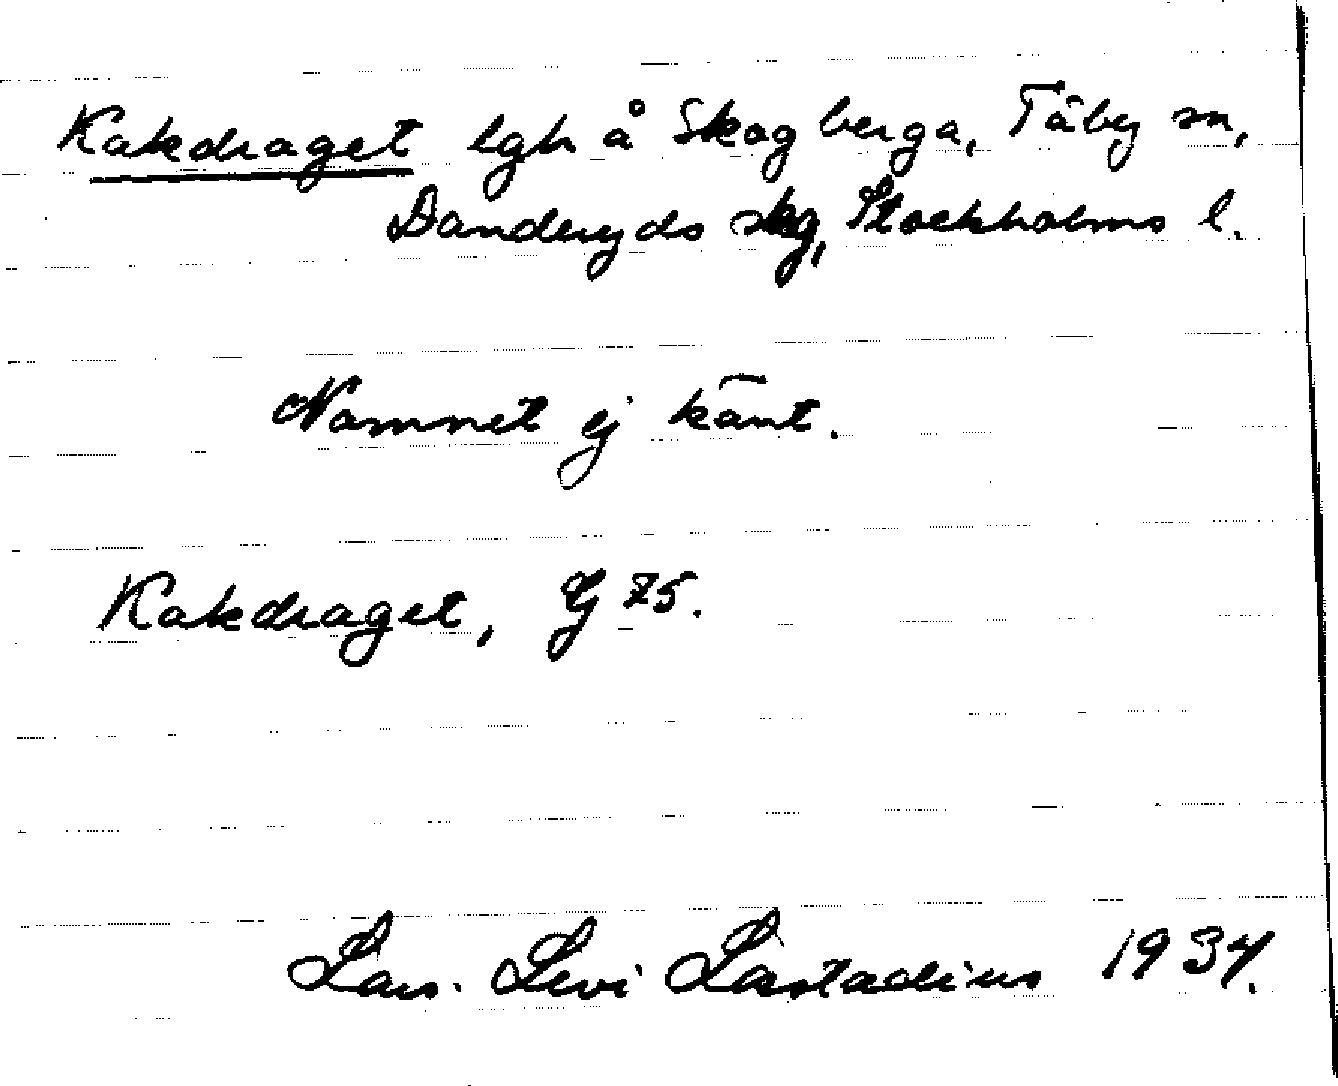 Kakdraget lgh å Skogberga, Täby sn,
Danderyds skg, Stockholms l.
Namnet ej känt.
Kakdraget, G 75.
Lars Levi Læstadius 1934.